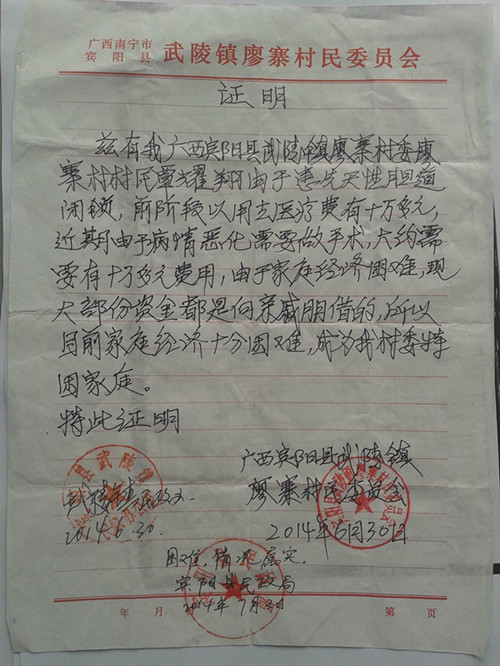 广西南宁市
宾阳县 武陵镇廖寨村民委员会
证明
兹有我广西宾阳县武陵镇廖寨村委廖
寨村村民覃耀翔由于患先天性胆道
闭锁，前阶段以用去医疗费有十万多元，
近期由于病情恶化需要做手术，大约需
要有十多万元费用，由于家庭经济困难，现
大部份资金都是向亲戚朋借的，所以
目前家庭经济十分困难，成为我村委特
困家庭。
特此证明
广西宾阳县武陵镇
廖寨村民委员会
2014年6月30日
县武陵镇
2014.6.30.
困难，情况属实。
宾阳县民政局
2014年7月
年 月 第 页